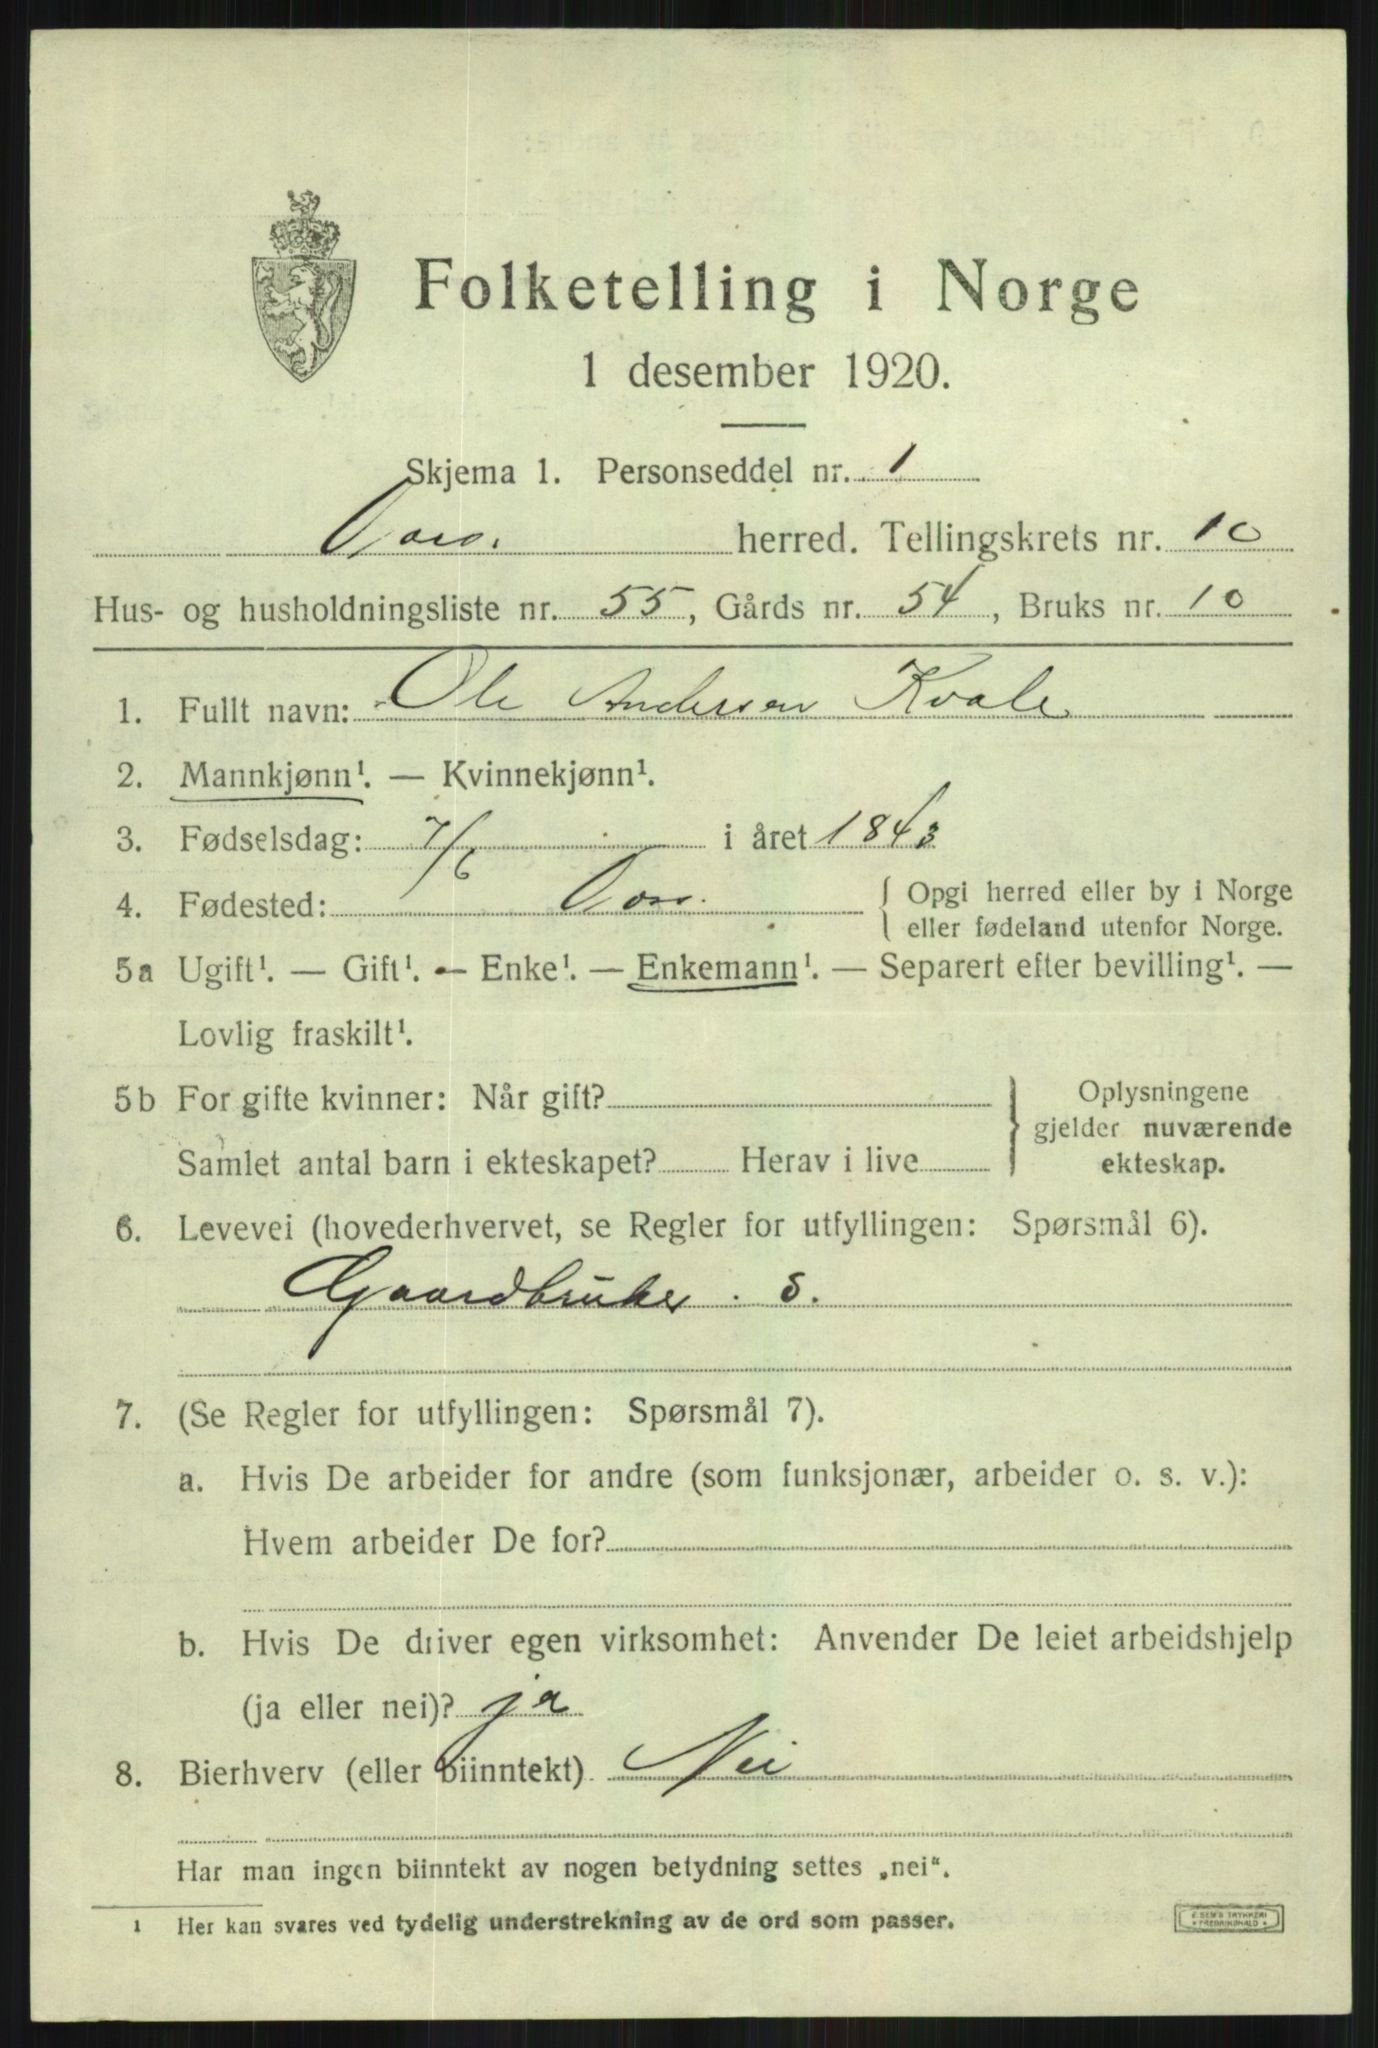 Folketelling i Norge
1 desember 1920.
Skjema 1. Personseddel nr. 1
Voss. herred. Tellingskrets nr. 10
Hus- og husholdningsliste nr. 55, Gårds nr. 54, Bruks nr. 10
1. Fullt navn: Ole Andersen Kvale
2. Mannkjønn¹. — Kvinnekjønn¹.
3. Fødselsdag: 7/6 i året 1843
4. Fødested: Voss. { Opgi herred eller by i Norge
eller fødeland utenfor Norge.
5a Ugift¹. — Gift¹. — Enke¹. — Enkemann¹. — Separert efter bevilling¹. —
Lovlig fraskilt¹.
5b For gifte kvinner: Når gift? } Oplysningene
gjelder nuværende
Samlet antal barn i ekteskapet? Herav i live ekteskap.
6. Levevei (hovederhvervet, se Regler for utfyllingen: Spørsmål 6).
Gaardbruker. S.
7. (Se Regler for utfyllingen: Spørsmål 7).
a. Hvis De arbeider for andre (som funksjonær, arbeider o. s. v.):
Hvem arbeider De for?
b. Hvis De driver egen virksomhet: Anvender De leiet arbeidshjelp
(ja eller nei)? ja
8. Bierhverv (eller biinntekt) Nei
Har man ingen biinntekt av nogen betydning settes „nei".
1 Her kan svares ved tydelig understrekning av de ord som passer.
E. SEM'S TRYKKERI
FREDRIKSHALD